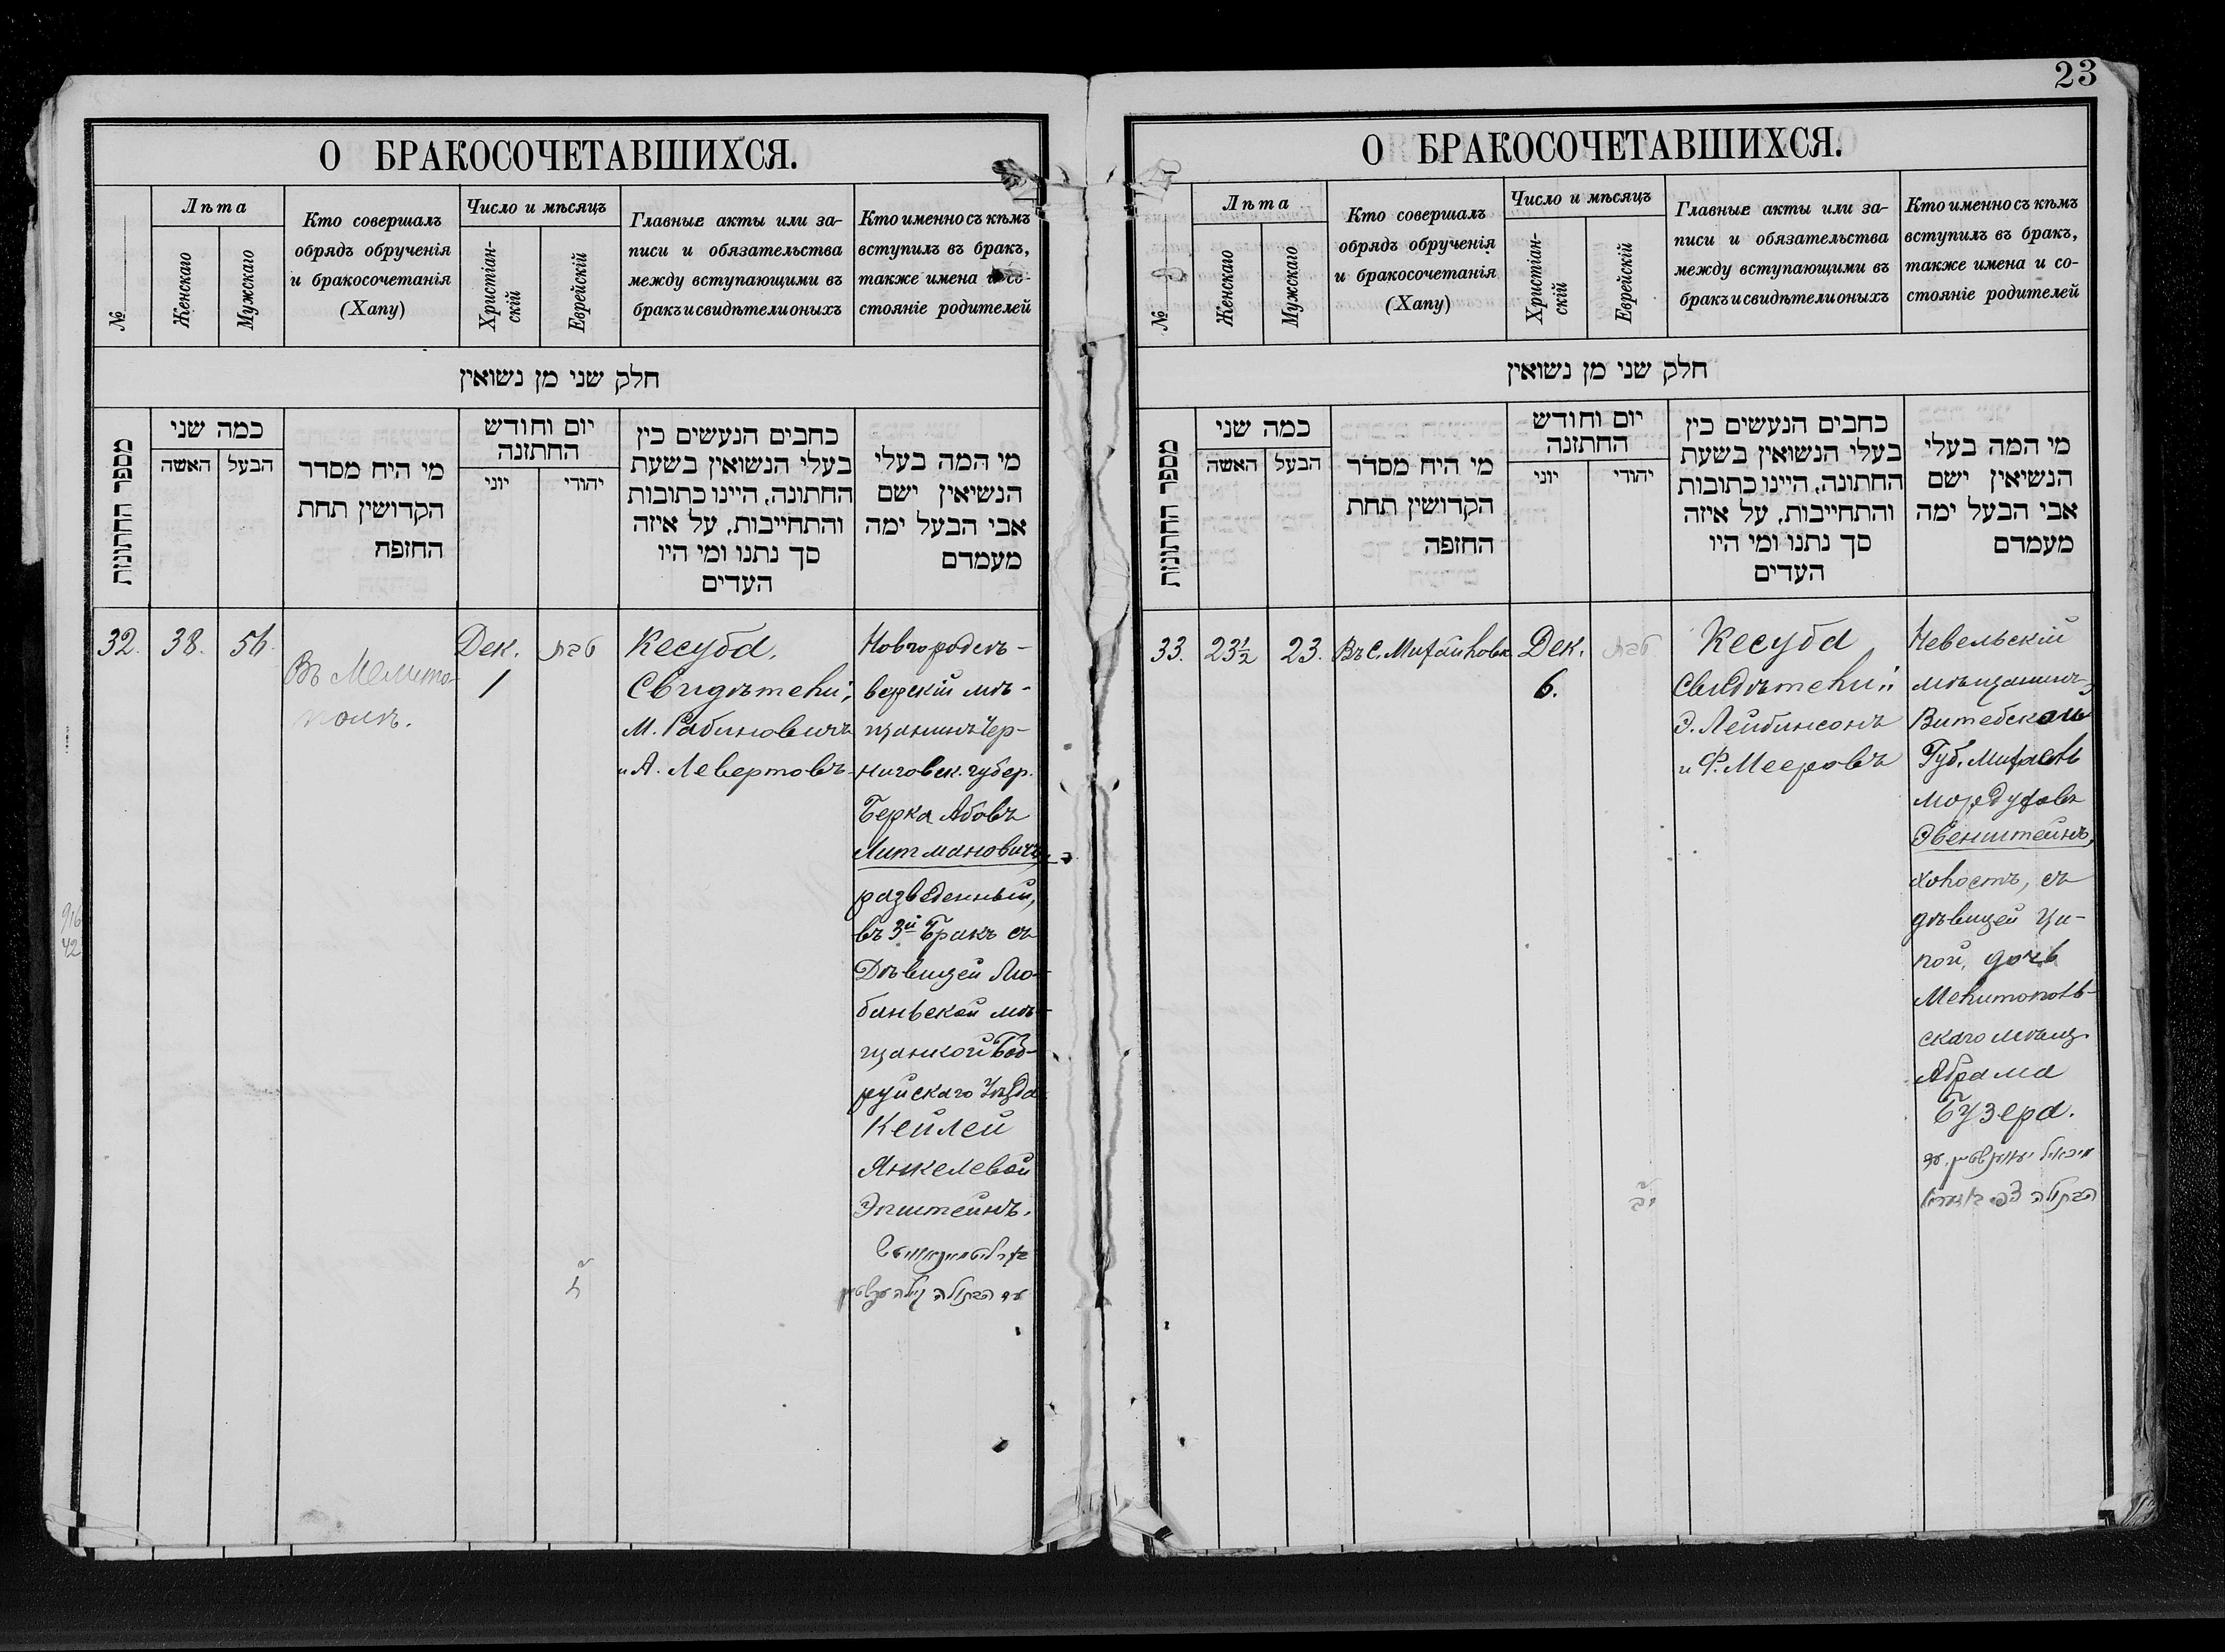 23
О БРАКОСОЧЕТАВШИХСЯ.
№
Лѣта
Женскаго
Мужскаго
Кто совершалъ
обрядъ обрученія
и бракосочетанія
(Хапу)
Число и мѣсяцъ
Христіан-
скій
Еврейскій
Главные акты или за-
писи и обязательства
между вступающими въ
бракъ и свидѣтели оныхъ
Кто именно съ кѣмъ
вступилъ въ бракъ,
также имена и со-
стояніе родителей
חלק שני מן נשואין
מספר החתונות
כמה שני
האשה
הבעל
מי היח מסדר
הקדושין תחת
החזפח
יום וחודש
החתזנה
יוני
יהודי
כחבים הנעשים כין
בעלי הנשואין בשעת
החתונה, היינו כתובות
והתחייבות, על איזה
סך נתנו ומי היו
העדים
מי המה בעלי
הנשיאין ישם
אבי הבעל ימה
מעמדם
32.
38.
56.
Въ Мелито-
полѣ.
Дек.
1
טבת
Кесуба.
Свидѣтели:
М. Рабиновичъ
и А. Левертовъ.
Новгородсѣ-
верскій мѣ-
щанинъ Чер-
ниговск. губер.
Берка Абовъ
Литмановичъ,
разведенный,
въ 3й Бракъ съ
Дѣвицей Лю-
баньской мѣ-
щанкой Боб-
руйскаго Уѣзда
Кейлей
Янкелевой
Эпштейнъ.
עם הבתולה
О БРАКОСОЧЕТАВШИХСЯ.
№
Лѣта
Женскаго
Мужскаго
Кто совершалъ
обрядъ обрученія
и бракосочетанія
(Хапу)
Число и мѣсяцъ
Христіан-
скій
Еврейскій
Главные акты или за-
писи и обязательства
между вступающими въ
бракъ и свидѣтели оныхъ
Кто именно съ кѣмъ
вступилъ въ бракъ,
также имена и со-
стояніе родителей
חלק שני מן נשואין
מספר החתונות
כמה שני
האשה
הבעל
מי היח מסדר
הקדושין תחת
החזפה
יום וחודש
החתזנה
יוני
יהודי
כחבים הנעשים כין
בעלי הנשואין בשעת
החתונה, היינו כתובות
והתחייבות, על איזה
סך נתנו ומי היו
העדים
מי המה בעלי
הנשיאין ישם
אבי הבעל ימה
מעמדם
33.
23½
23.
Въ С. Михайловк
Дек.
6.
טבת
יב
Кесуба
Свидѣтели:
Э. Лейбинсонъ
и Ф. Мееровъ
Невельскій
мѣщанинъ,
Витебской
Губ. Михаель
Мордуховъ
Эвенштейнъ,
холостъ, съ
дѣвицей Ци-
пой, дочь
Мелитополь-
скаго мѣщ.
Абрама
Бузера.
מיכאל עם
הבתולה צפי